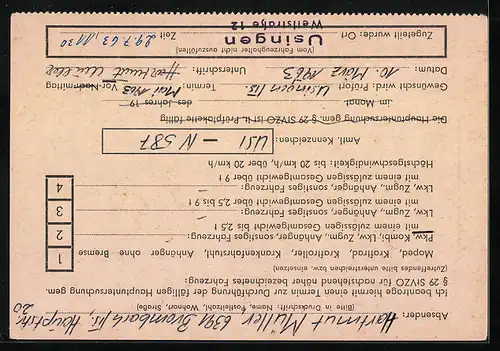 Absender: Hartmut Müller, 6391 Brombach/Ts, Hauptstr. 20
(Bitte in Druckschrift: Name, Postleitzahl, Wohnort, Straße)
Ich beantrage hiermit einen Termin zur Durchführung der fälligen Hauptuntersuchung gem.
§ 29 StVZO für nachstehend näher bezeichnetes Fahrzeug:
(Zutreffendes bitte unterstreichen bzw. einsetzen)
Moped, Kraftrad, Kraftroller, Krankenfahrstuhl, Anhänger ohne Bremse 1
Pkw, Kombi, Lkw, Zugm., Anhänger, sonstiges Fahrzeug:
mit einem zulässigen Gesamtgewicht bis 2,5 t 2
Lkw, Zugm., Anhänger, sonstiges Fahrzeug:
mit einem zulässigen Gesamtgewicht über 2,5 bis 9 t 3
Lkw, Zugm, Anhänger, sonstiges Fahrzeug:
mit einem zulässigen Gesamtgewicht über 9 t 4
Höchstgeschwindigkeit: bis 20 km/h, über 20 km/h
Amtl. Kennzeichen: USI - N 587
Die Hauptuntersuchung gem. § 29 StVZO ist lt. Prüfplakette fällig
im Monat des Jahres 19
Gewünscht wird: Prüfort: Usingen/Ts. Termin: Mai 1963 Vor-Nachmittag
Datum: 10. März 1963 Unterschrift: Hartmut Müller
(Vom Fahrzeughalter nicht auszufüllen)
Zugeteilt wurde: Ort: Usingen Zeit 29.7.63, 11 30
Weilstraße 12